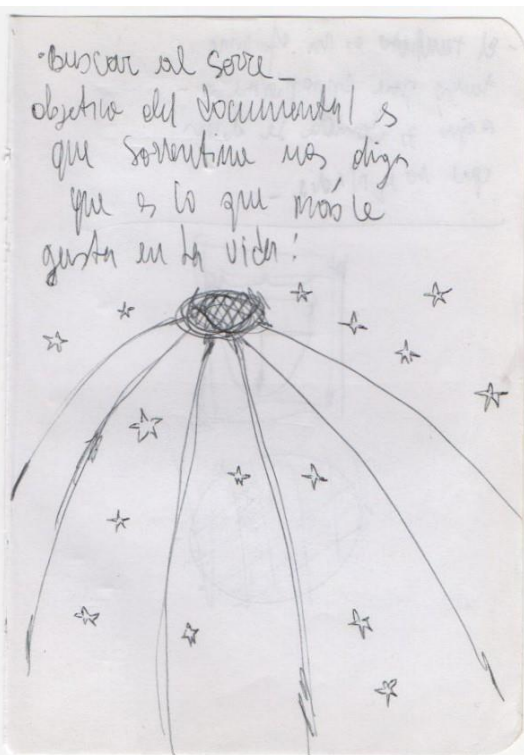 ·Buscar al Sorre_
objetivo del Documental es
que Sorrentino nos diga
que es lo que más le
gusta en la vida!